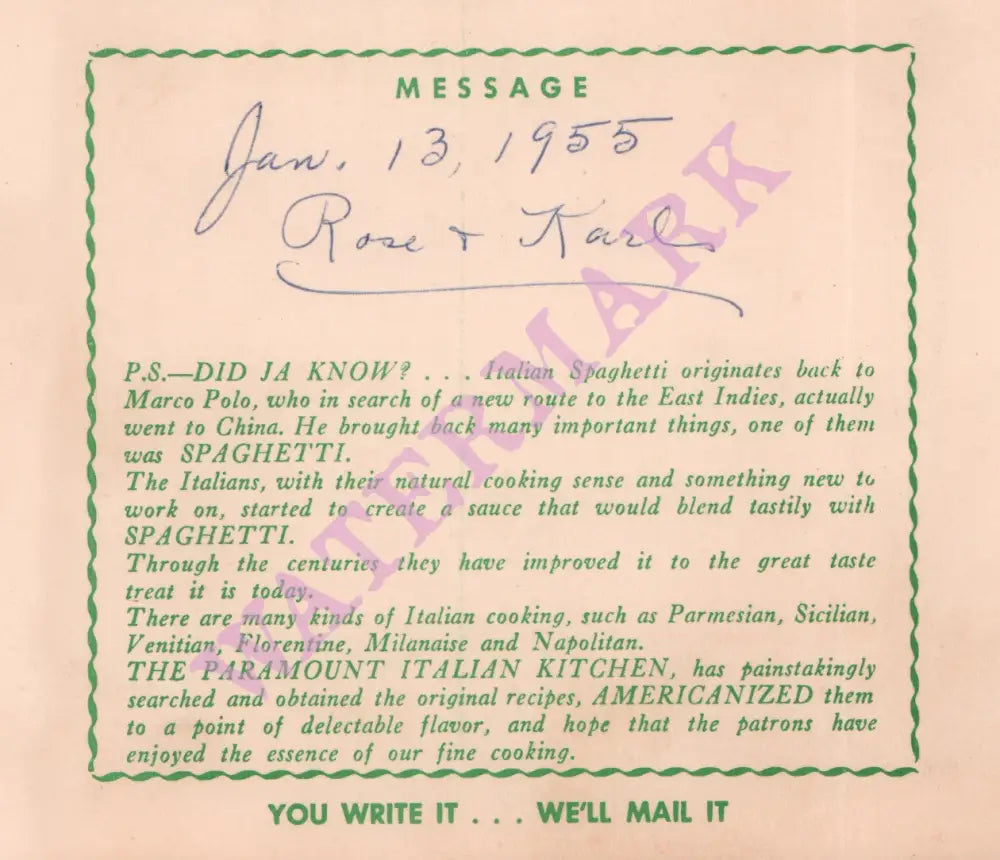 MESSAGE
Jan. 13, 1955
Rose + Karl
P.S.—DID JA KNOW? . . . Italian Spaghetti originates back to
Marco Polo, who in search of a new route to the East Indies, actually
went to China. He brought back many important things, one of them
was SPAGHETTI.
The Italians, with their natural cooking sense and something new to
work on, started to create a sauce that would blend tastily with
SPAGHETTI.
Through the centuries they have improved it to the great taste
treat it is today.
There are many kinds of Italian cooking, such as Parmesian, Sicilian,
Venitian, Florentine, Milanaise and Napolitan.
THE PARAMOUNT ITALIAN KITCHEN, has painstakingly
searched and obtained the original recipes, AMERICANIZED them
to a point of delectable flavor, and hope that the patrons have
enjoyed the essence of our fine cooking.
YOU WRITE IT . . . WE'LL MAIL IT
WATERMARK